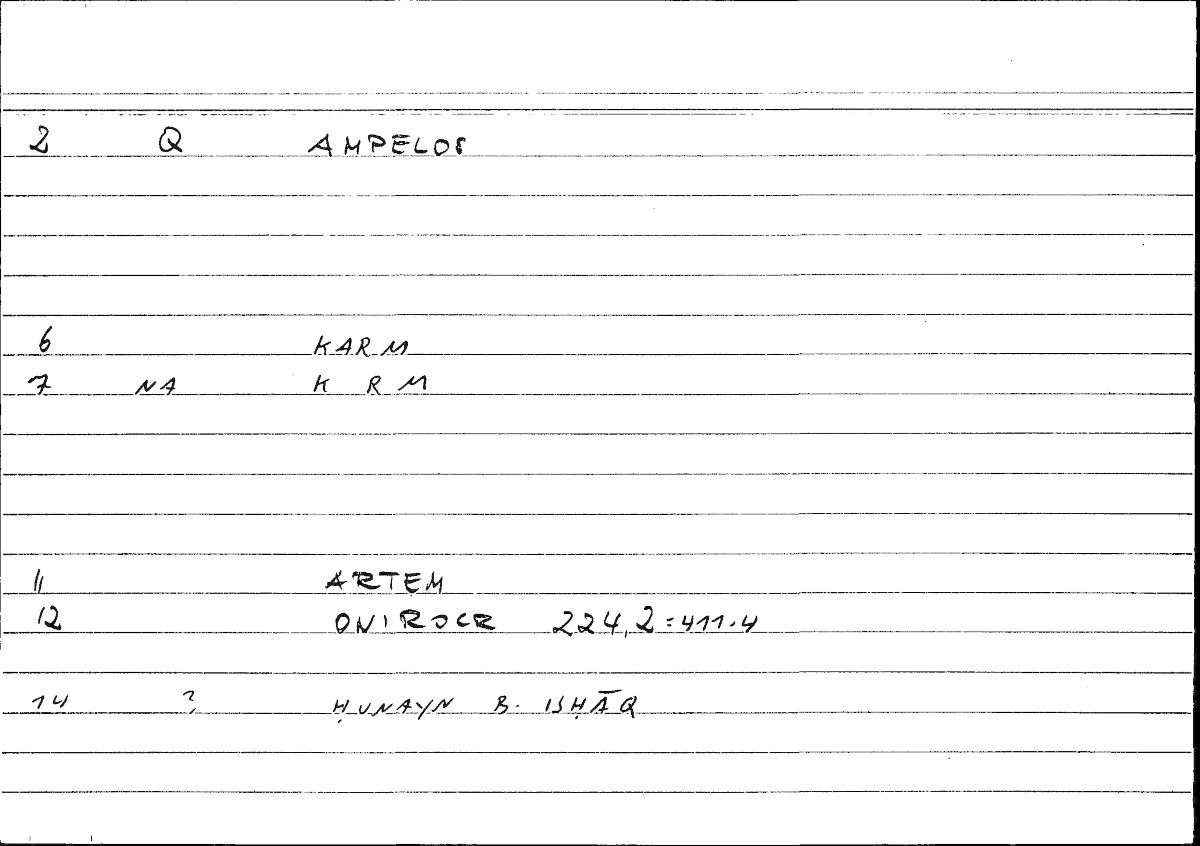 2 Q AMPELOS
6 KARM
7 NA K RM
11 ARTEM
12 ONIROCR 224,2=411.4
14 ? ḤUNAYN B. ISḤĀQ